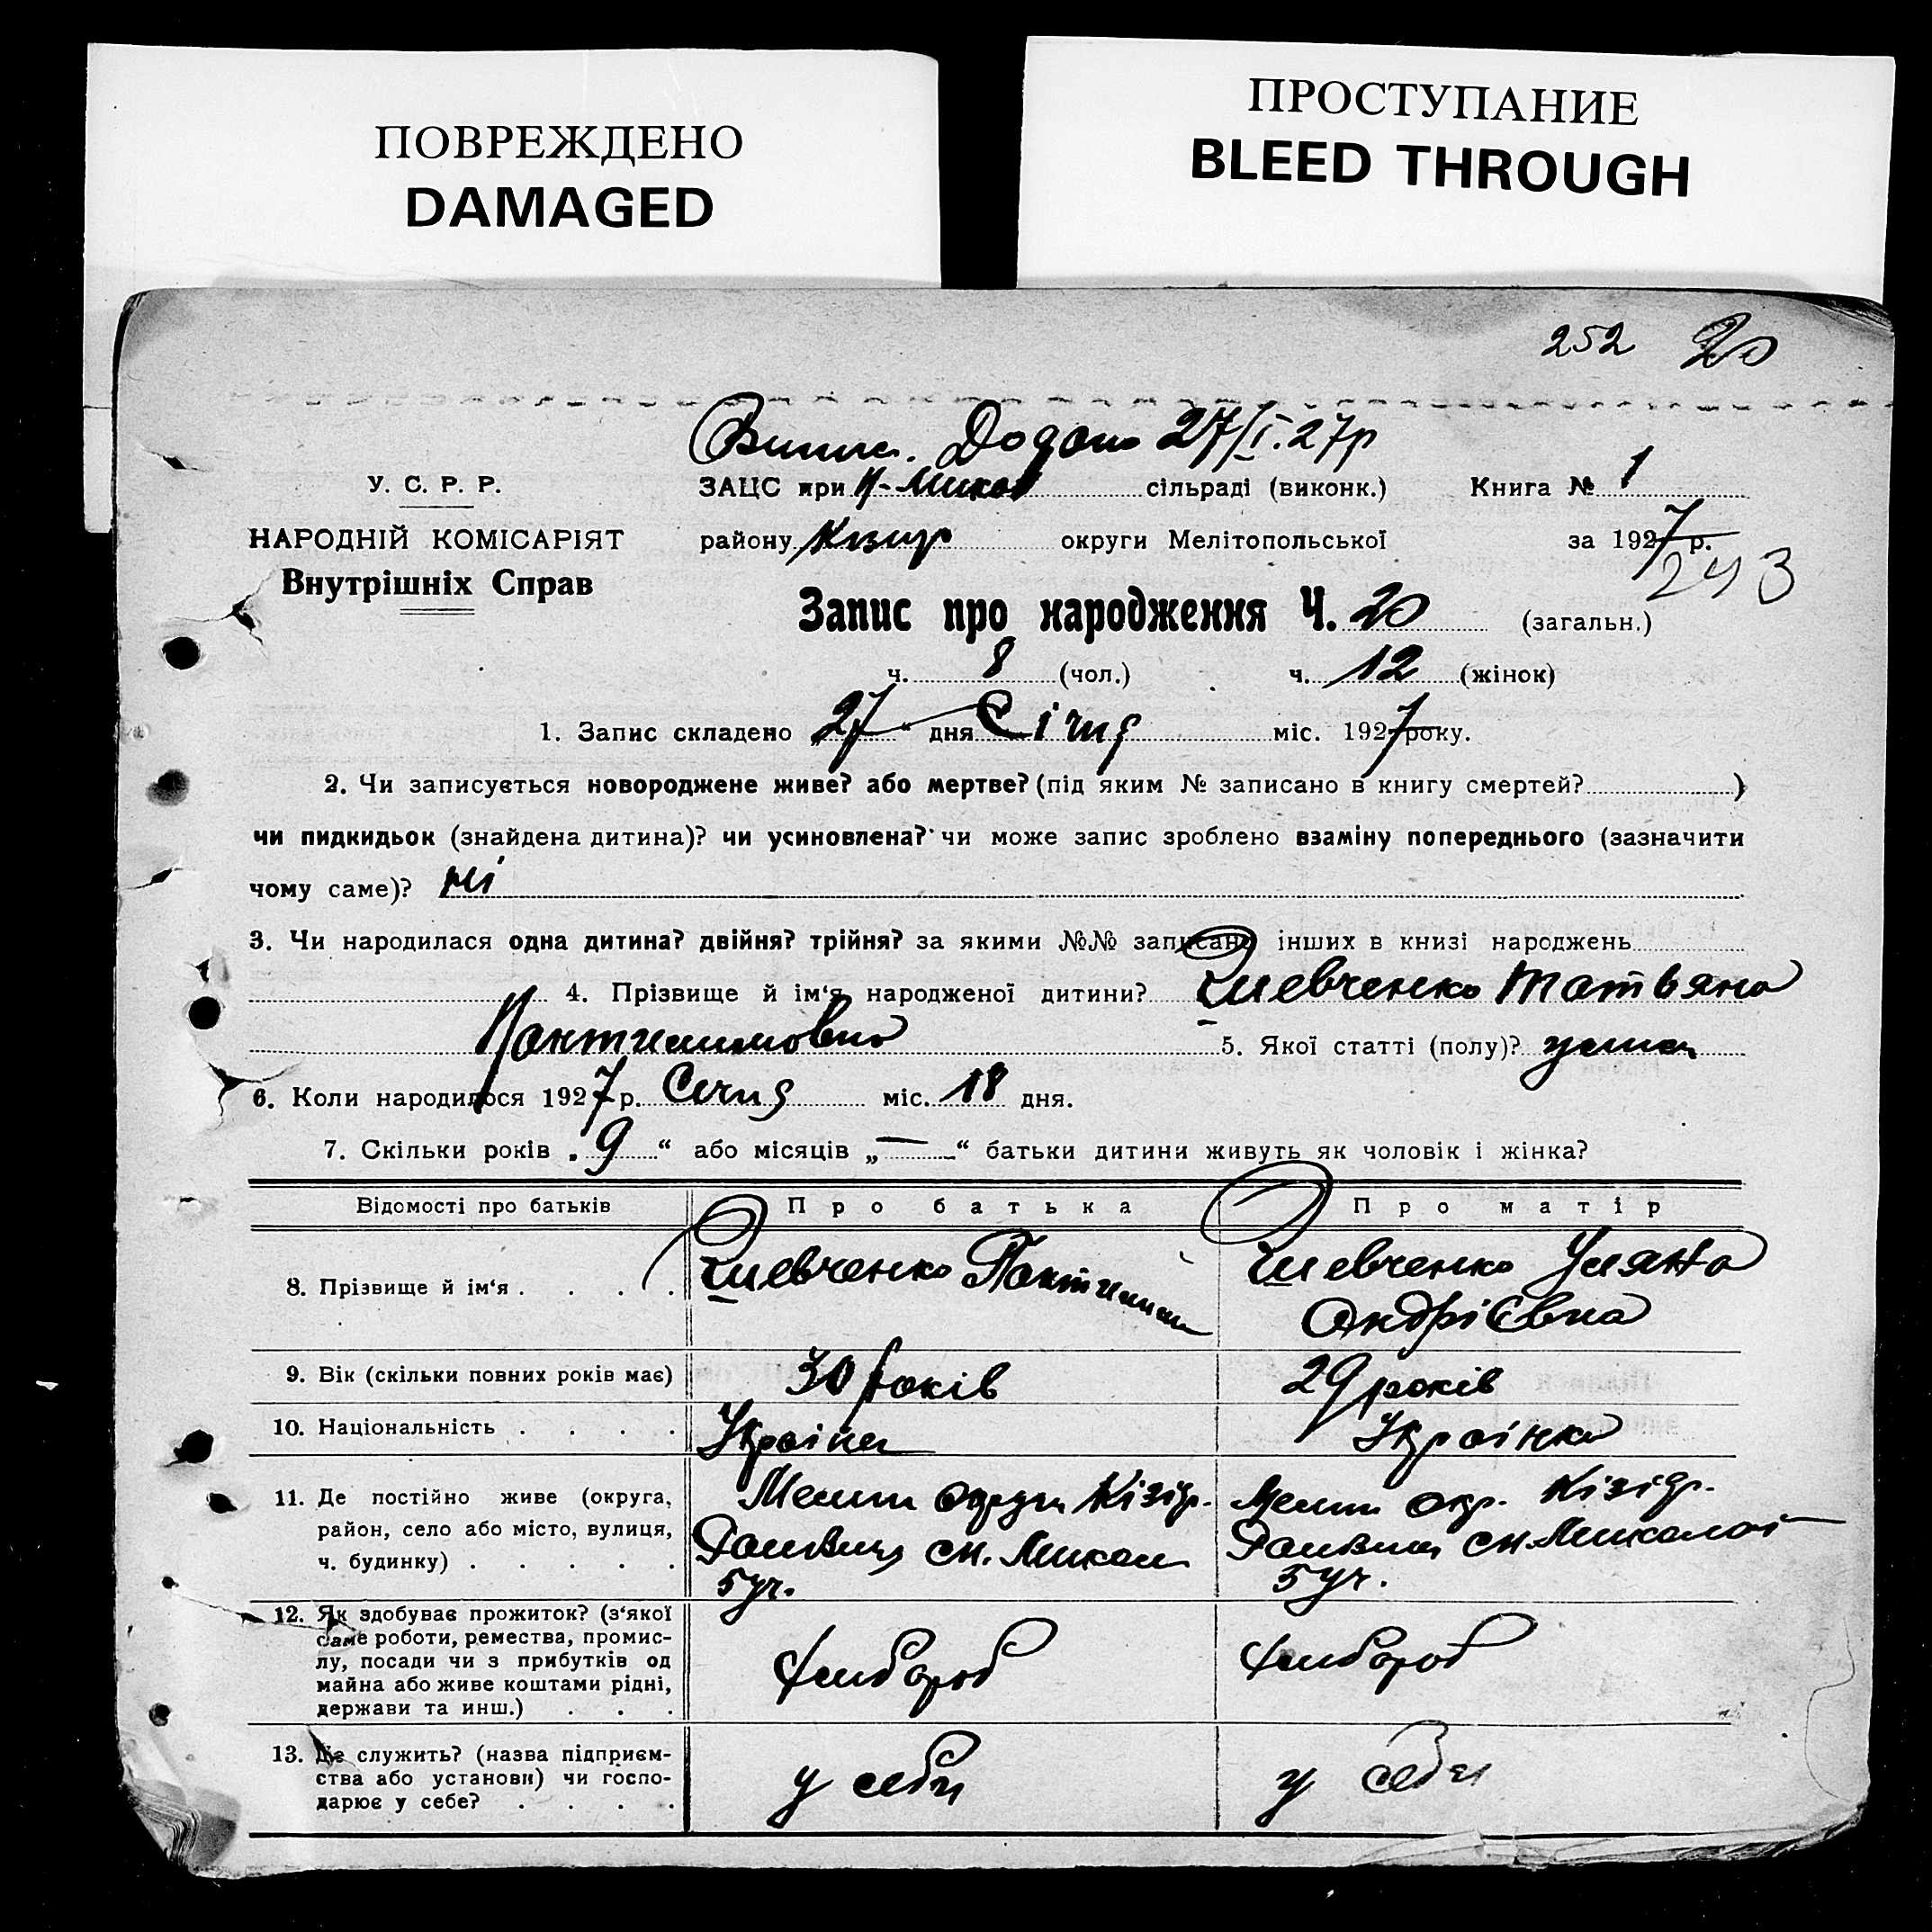 ПОВРЕЖДЕНО
DAMAGED
ПРОСТУПАНИЕ
BLEED THROUGH
252 20
27/I.27р
У. С. Р. Р.
ЗАЦС при Н-Микол сільраді (виконк.) Книга № 1
НАРОДНІЙ КОМІСАРІЯТ
району округи Мелітопольської за 1927 р.
Внутрішніх Справ
243
Запис про народження Ч. 20 (загальн.)
ч. 8 (чол.) ч. 12 (жінок)
1. Запис складено „27“ дня Січня міс. 1927 року.
2. Чи записується новороджене живе? або мертве? (під яким № записано в книгу смертей? )
чи пидкидьок (знайдена дитина)? чи усиновлена? чи може запис зроблено взаміну попереднього (зазначити
чому саме)? ні
3. Чи народилася одна дитина? двійня? трійня? за якими №№ записано інших в книзі народжень
4. Прізвище й ім‘я народженої дитини? Шевченко Татьяна
5. Якої статті (полу)?
6. Коли народилося 1927 р. Січня міс. 18 дня.
7. Скільки років „9“ або місяців „—“ батьки дитини живуть як чоловік і жінка?
Відомості про батьків Про батька Про матір
8. Прізвище й ім‘я . . . . Шевченко Шевченко Уляна
Андрієвна
9. Вік (скільки повних років має) 30 років 29 років
10. Національність . . . . Україне Українка
11. Де постійно живе (округа, Мелит округи Кізіяр. Мелит окр. Кізіяр.
район, село або місто, вулиця,
ч. будинку) . . . . . 5 уч. 5 уч.
12. Як здобуває прожиток? (з‘якої
саме роботи, ремества, промис-
лу, посади чи з прибутків од
майна або живе коштами рідні,
держави та инш.) . . . Хлибороб Хлибороб
13. Де служить? (назва підприєм-
ства або установи) чи госпо-
дарює у себе? . . . . у себи у себи